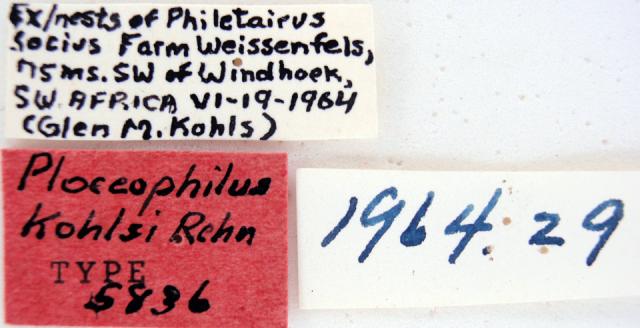 Ex/nests of Philetairus
socius Farm Weissenfels,
75ms. SW of Windhoek,
SW. AFRICA VI-19-1964
(Glen M. Kohls)
Ploceophilus
Kohlsi Rehn
TYPE
5836
1964. 29